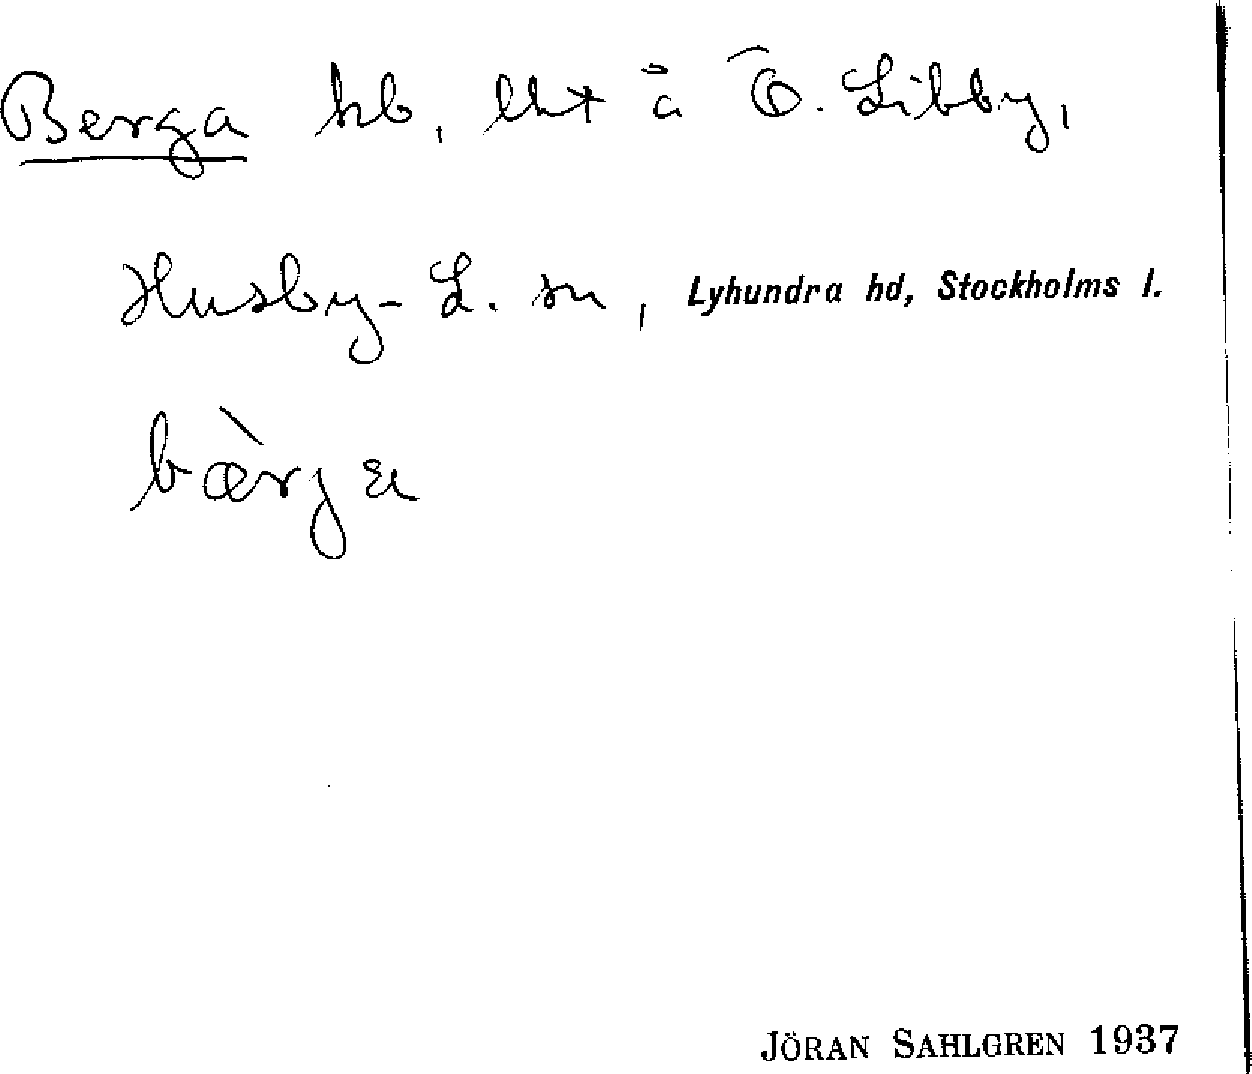 Berga hb, lht å Ö. Libby,
Husby-L. sn, Lyhundra hd, Stockholms l.
bærga
JÖRAN SAHLGREN 1937